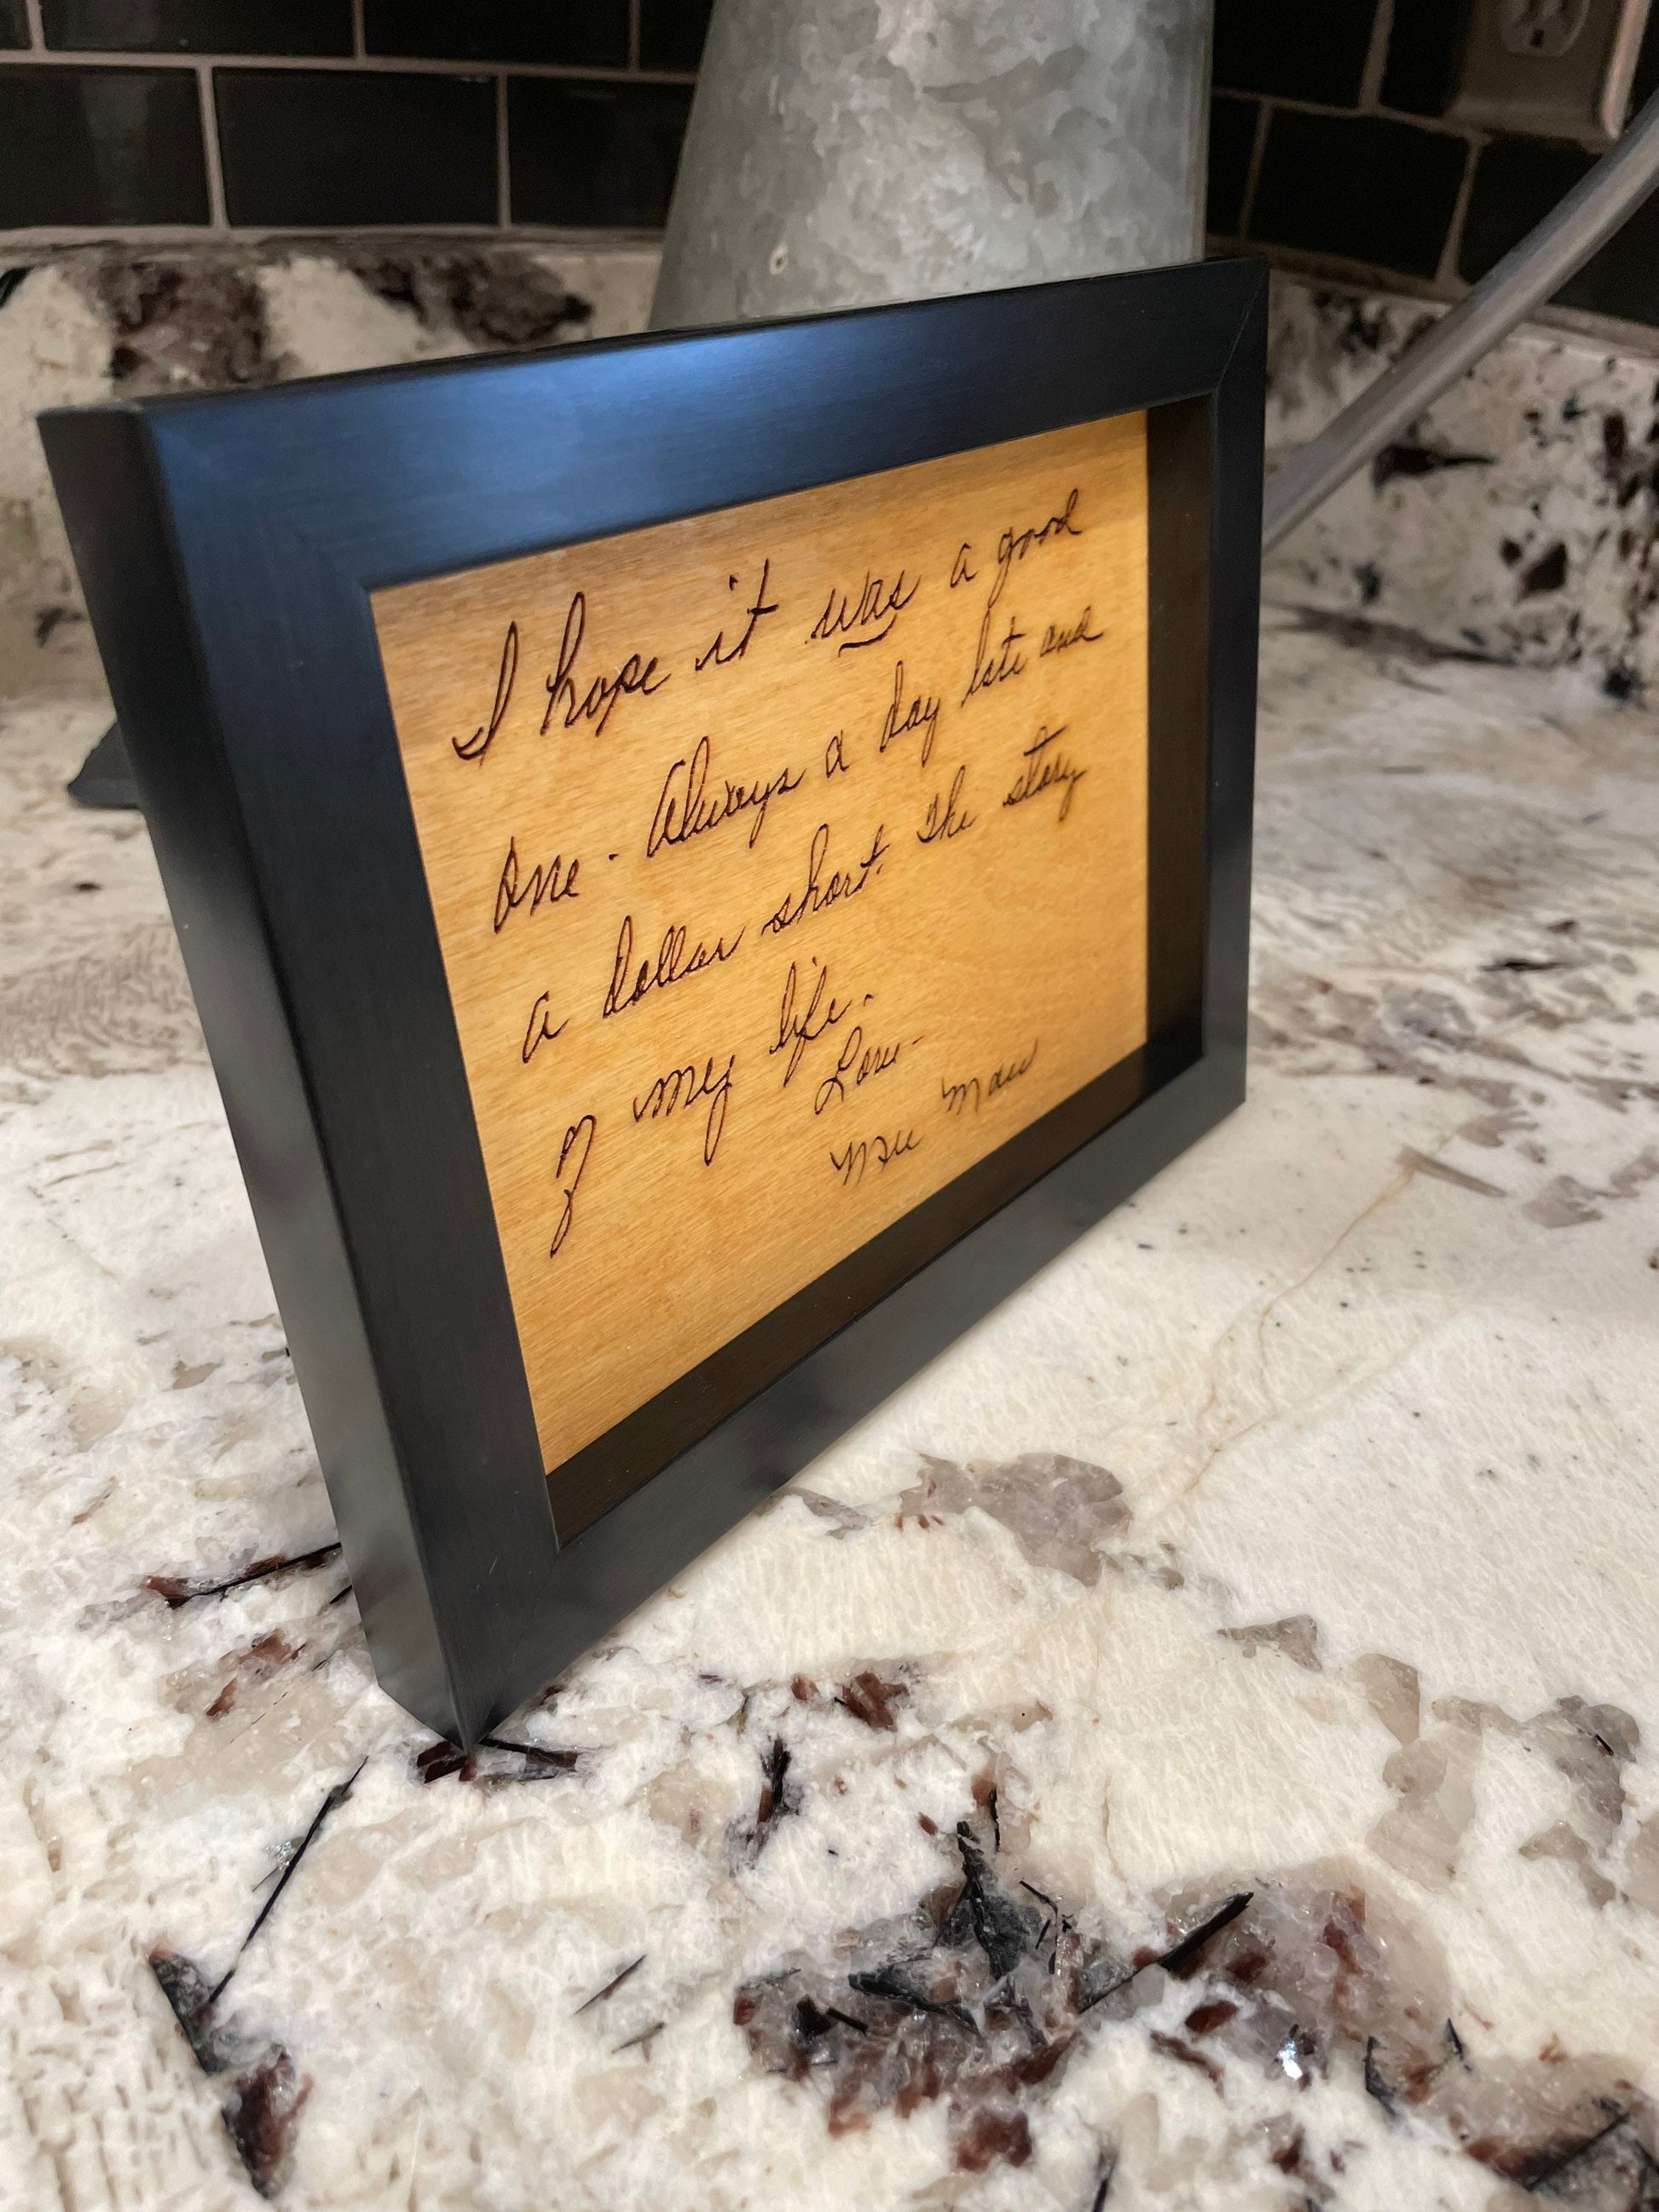 I hope it was a good
one. Always a day late and
a dollar short. The story
of my life.
Love-
Maw